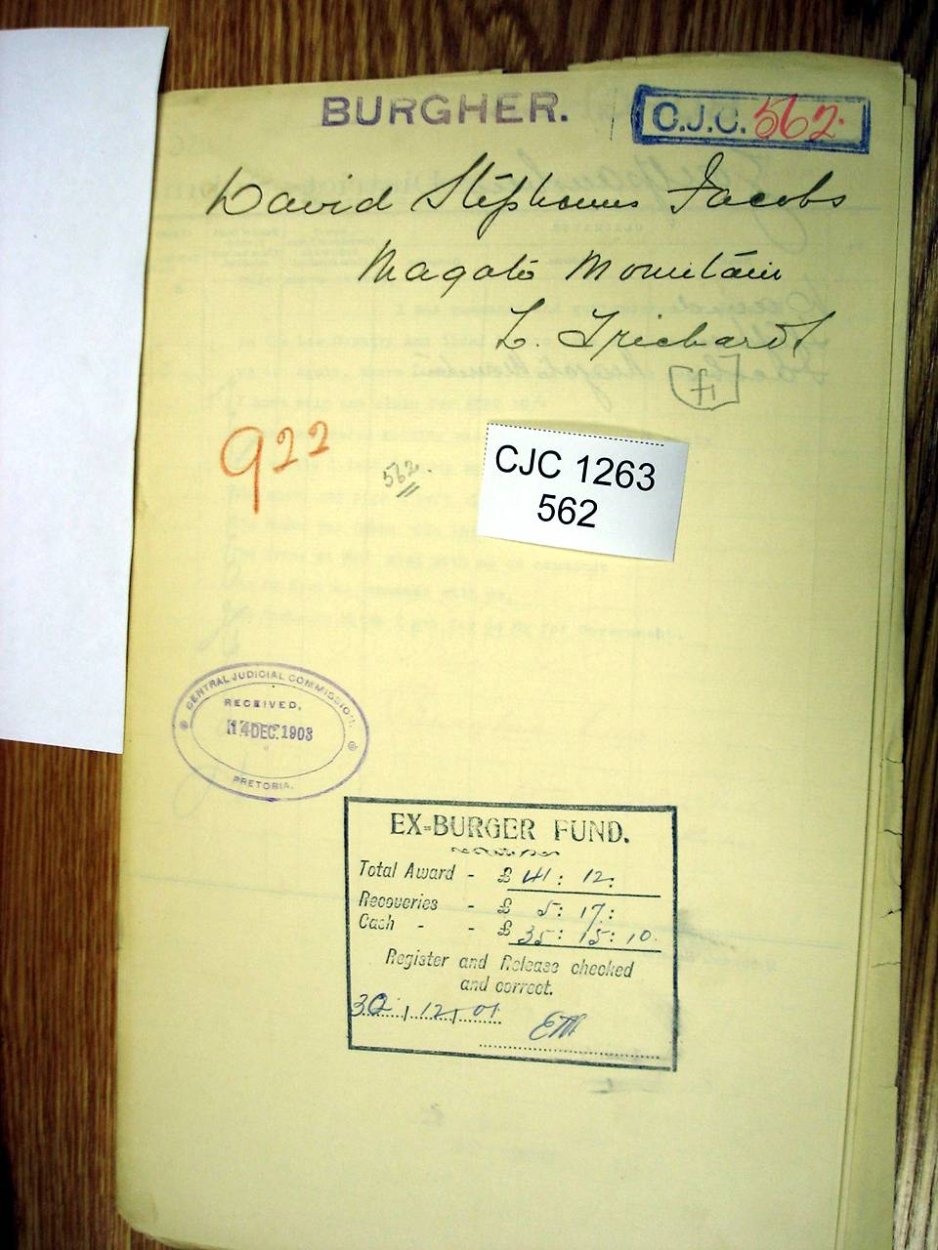 BURGHER.
C.J.C. 562.
David Stéphanus Jacobs
Magato Mountain
L. Trichardt
922
562.
CJC 1263
562
CENTRAL JUDICIAL COMMISSION.
RECEIVED,
14 DEC. 1903
PRETORIA.
EX-BURGER FUND.
Total Award - £ 41: 12:
Recoveries - £ 5: 17:
Cash - - £ 35: 15: 10.
Register and Release checked
and correct.
30 12